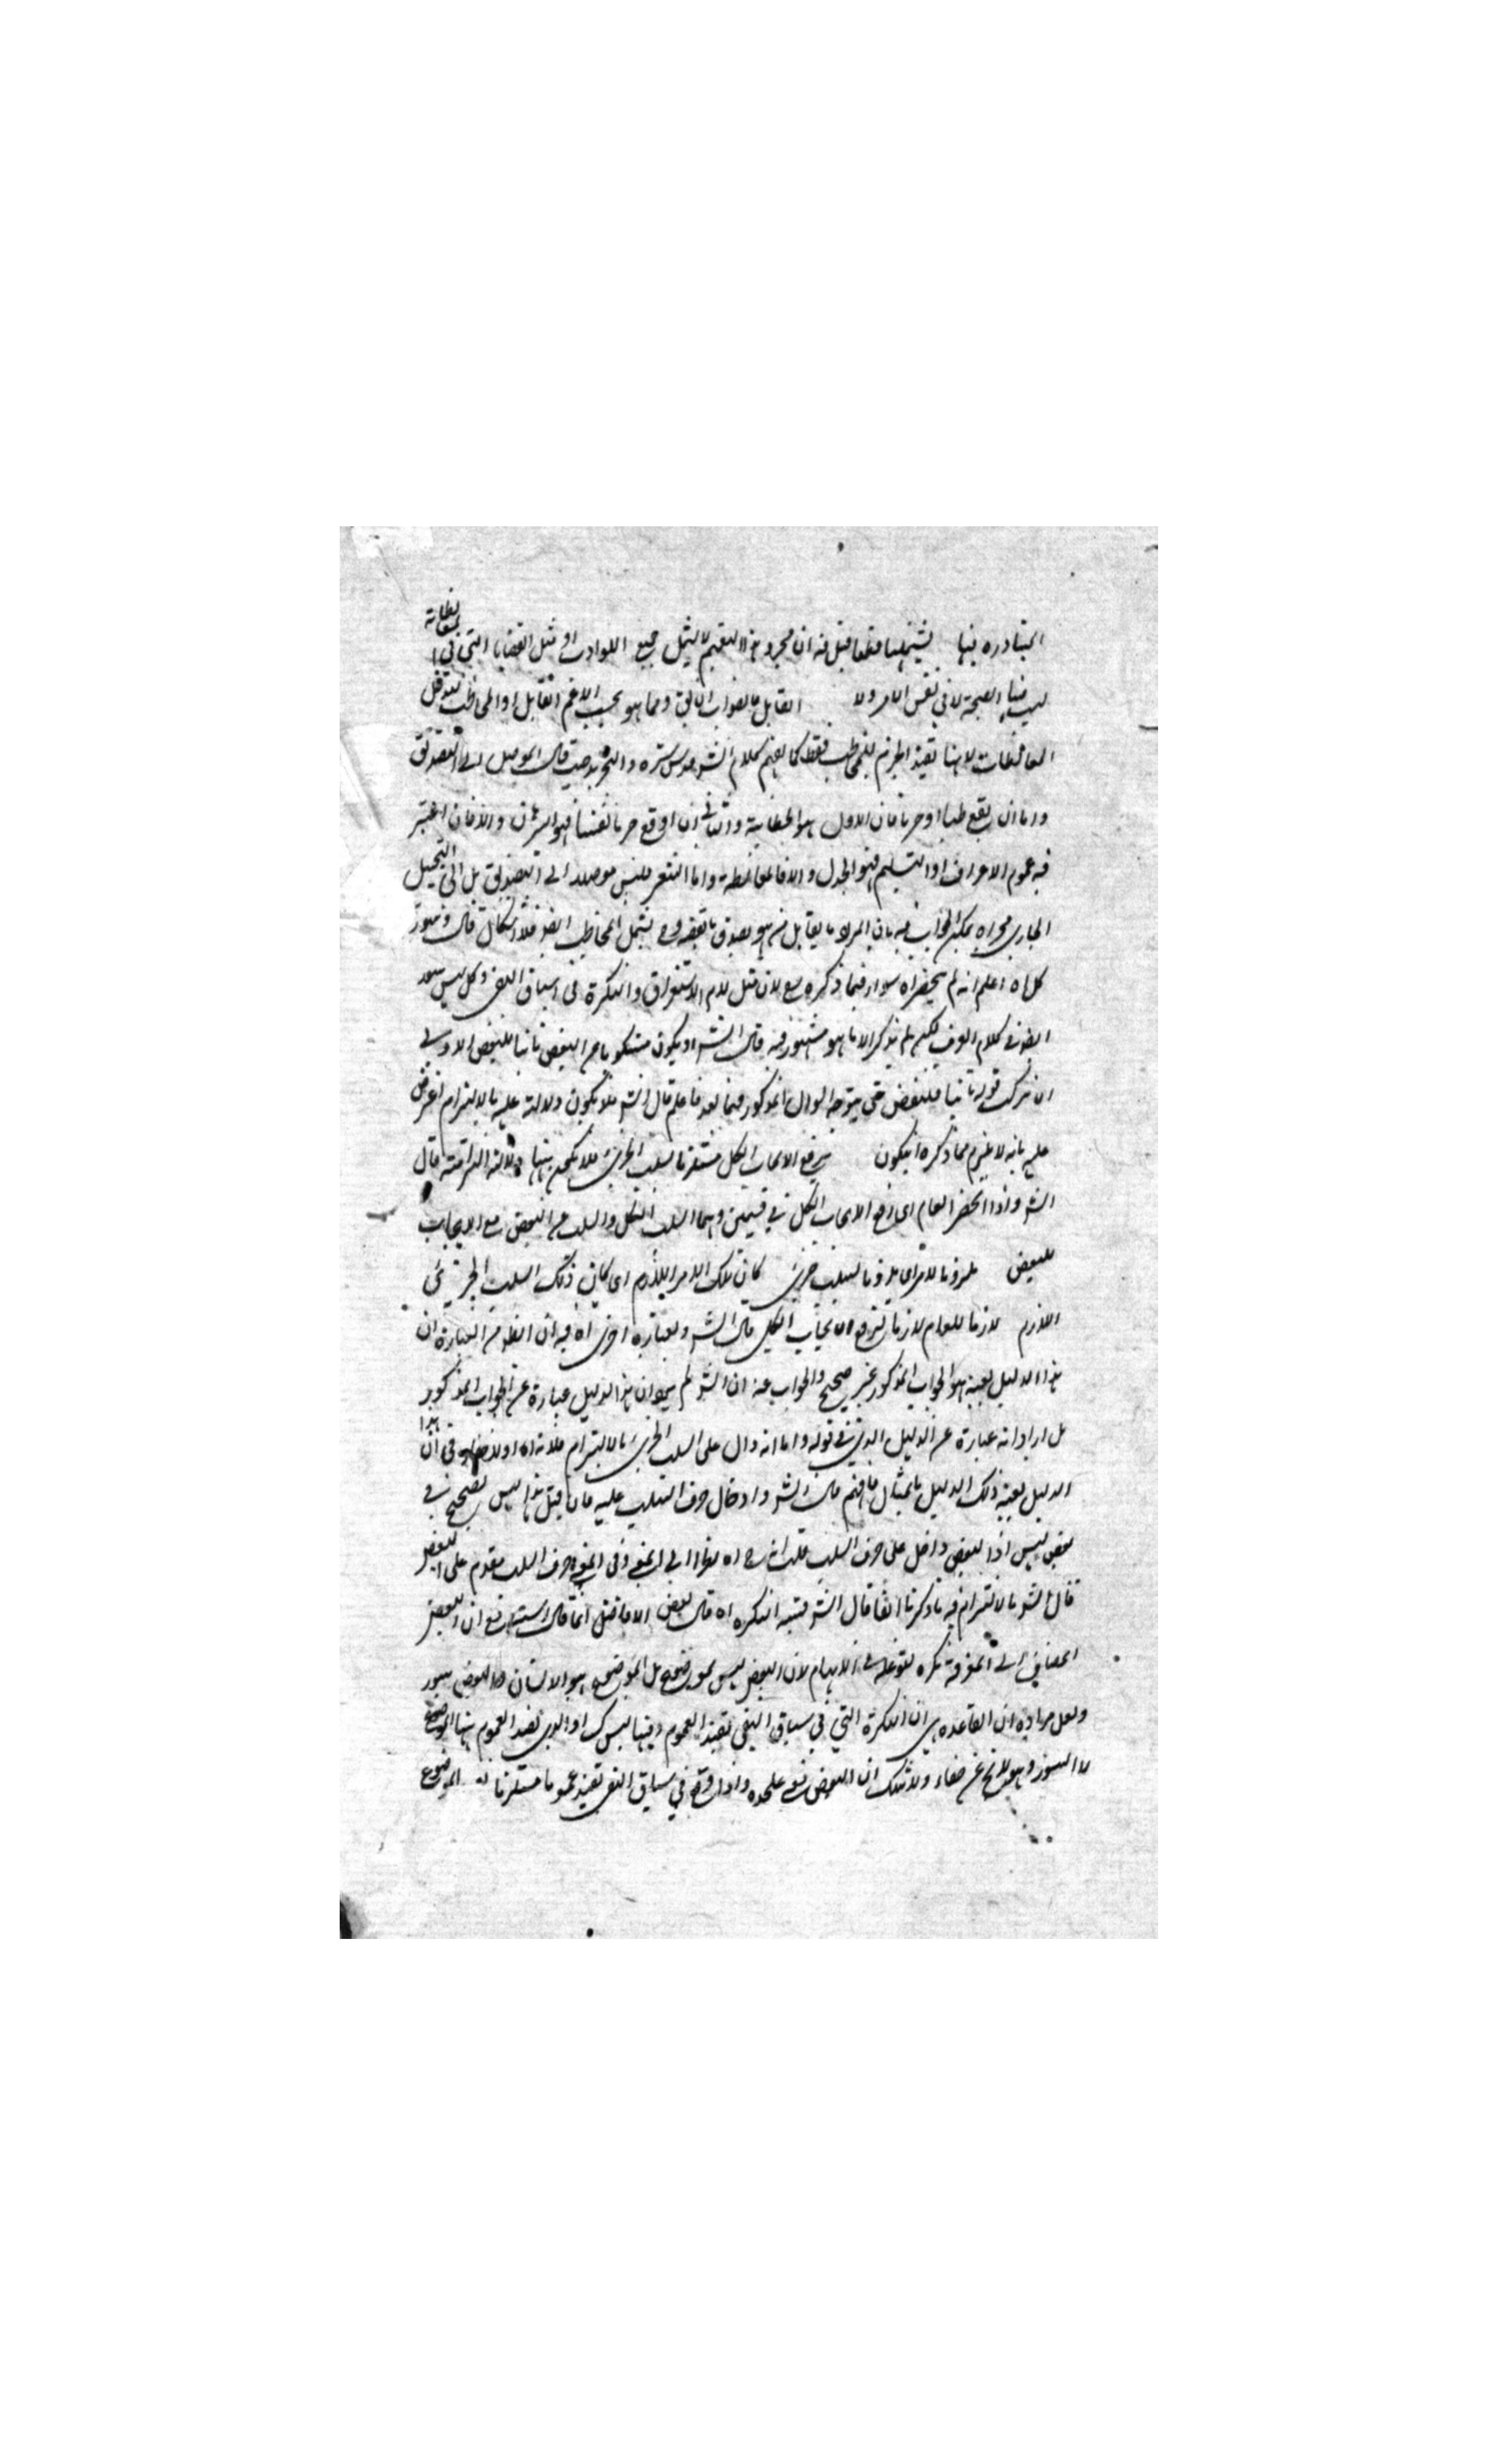 المتبادره فيها يشتملها قطعا قيل فيه ان مجرد هذا التعميم لا يشمل جميع المواد اه مثل القضايا التي في المغالطات
ليس فيها الصحة لا في نفس الامر ولا القابل بالصواب ان يق ومما هو بحسب الزعم القابل او المخاطب فتدخل
المغالطات لانها تفيد الجزم للمخاطب فقط كما يفهم كلام الش قدس سره والتجريد حيث قال الموصل الى التصديق
واما ان يقع ظنا او جزما فان الاول هو الخطابة والثاني ان اوقع جزما يقينيا فهو البرهان والا فان اعتبر
فيه عموم الاعتراف او التسليم فهو الجدل والا فالمغالطة واما الشعر فليس موصلا الى التصديق بل الى التخييل
الجاري مجراه يمكن الجواب فيه بان المراد ما يقابل هو يصدق يشمل المخاطب ايض فلا اشكال قال وسور
كل اه اعلم انه لم يحصر اه سوار فيما ذكره مع لان مثل لام الاستغراق والنكرة في سياق النفى وكل ليس سور
ايض في كلام لكنه لم يذكر الا ما هو مشهور فيه قال الش او يكون مسلوبا عن البعض ثابتا للبعض الاولى
ان يترك قوله ثابتا للبعض حتى يتوجه السوال المذكور فيما بعد فاعلم قال الش فلا يكون دلالته عليه بالالتزام اعترض
عليه بانه لا يلزم مما ذكره ان يكون رفع الايجاب الكلى مستلزما لسلب الجزئى فلا يكون دلالته التزامية قال
الش واذا انحصر العام اى رفع الايجاب الكلى في قسمين وهما السلب الكلى والسلب عن البعض مع الايجاب
للبعض ملزوما لامر اى ملزوما لسلب جزئى كان ذلك الامر اللازم اى كان ذلك السلب الجزئى
اللازم لازما للعام لازما لرفع الايجاب الكلى قال الش وبعبارة اخرى اه فيه ان الظ من العبارة ان
هذا الدليل بعينه هو الجواب المذكور غير صحيح والجواب عنه ان الش لم يرد ان هذا الدليل عبارة عن الجواب المذكور
بل اراد انه عبارة عن الدليل الذي في قوله واما انه دال على السلب الجزئى بالالتزام فلانه اه ولا خفاء في ان هذا
الدليل بعينه ذلك الدليل بامثال فافهم قال الش وادخال حرف السلب عليه فان قيل هذا ليس بصحيح في
بعض ليس اذا البعض داخل على حرف السلب قلت اه نظرا الى المعنى وفى المعنى حرف السلب مقدم على البعض
قال الش بالالتزام فيه ما ذكرنا انفا قال الش فتشبه النكره اه قال بعض الافاضل انما قال اشبه مع ان البعض
المضاف الى المعرفة نكره لتوغله في الابهام لان البعض ليس بموضوع بل الموضوع هو الانسان والبعض سور
ولعل مراده ان القاعده هي ان النكرة التي في سياق النفى تفيد العموم وفيها ليس كك او الذي يفيد العموم هنا الموضوع
لا السور وهو لا يخ عن خفاء ولا شك ان البعض على حده واذا وقع في سياق النفى تفيد عموما مستلزما له الموضوع